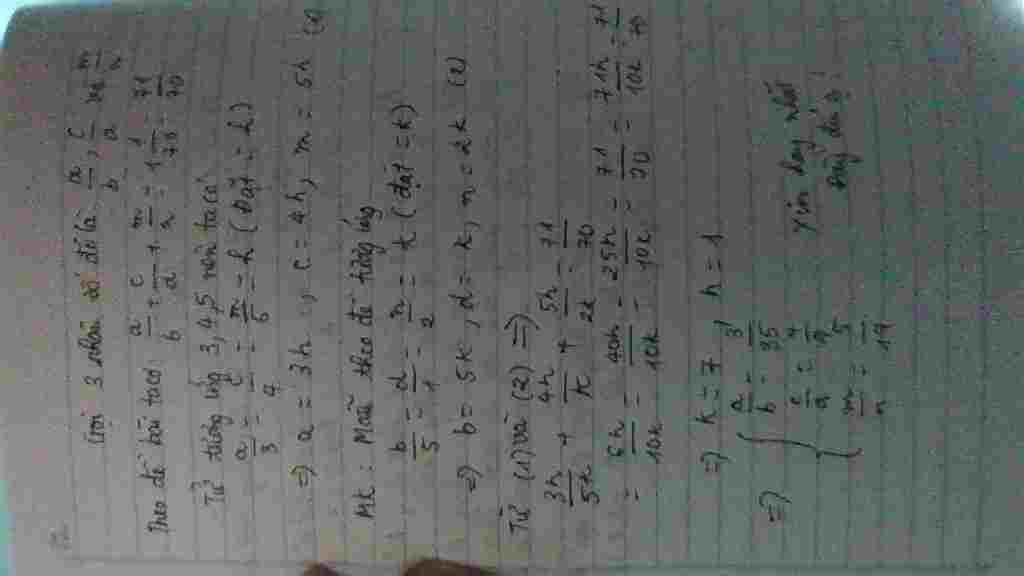 Gọi 3 phân số đó là a/b, c/d và m/n
Theo đề bài ta có: a/b + c/d + m/n = 1 1/70 = 71/70
Tử tương ứng 3, 4, 5 nên ta có
a/3 = c/4 = m/5 = h (Đặt = h)
=> a = 3h, c = 4h, m = 5h (1)
Mk: Mẫu theo đề tương ứng
b/5 = d/1 = n/2 = k (đặt = k)
=> b = 5k, d = k, n = 2k (2)
Từ (1) và (2) =>
3h/5k + 4h/k + 5h/2k = 71/70
= 6h/10k = 40h/10k = 25h/10k = 71/70 = 71h/10k = 71/70
=> k = 7, h = 1
=> { a/b = 3/35
c/d = 4/7
m/n = 5/14
xin hay nhất